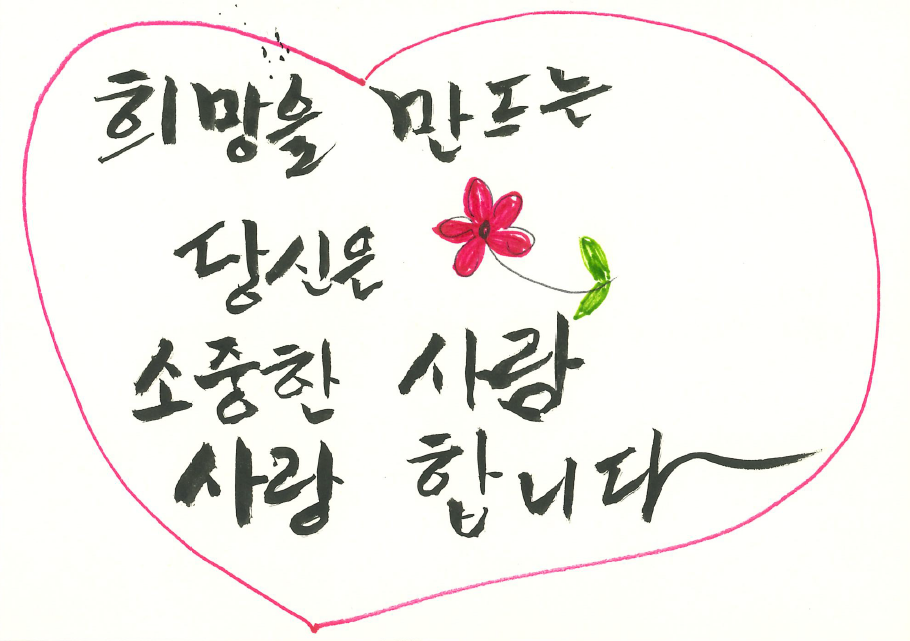 희망을 만드는
당신은
소중한 사람
사랑 합니다